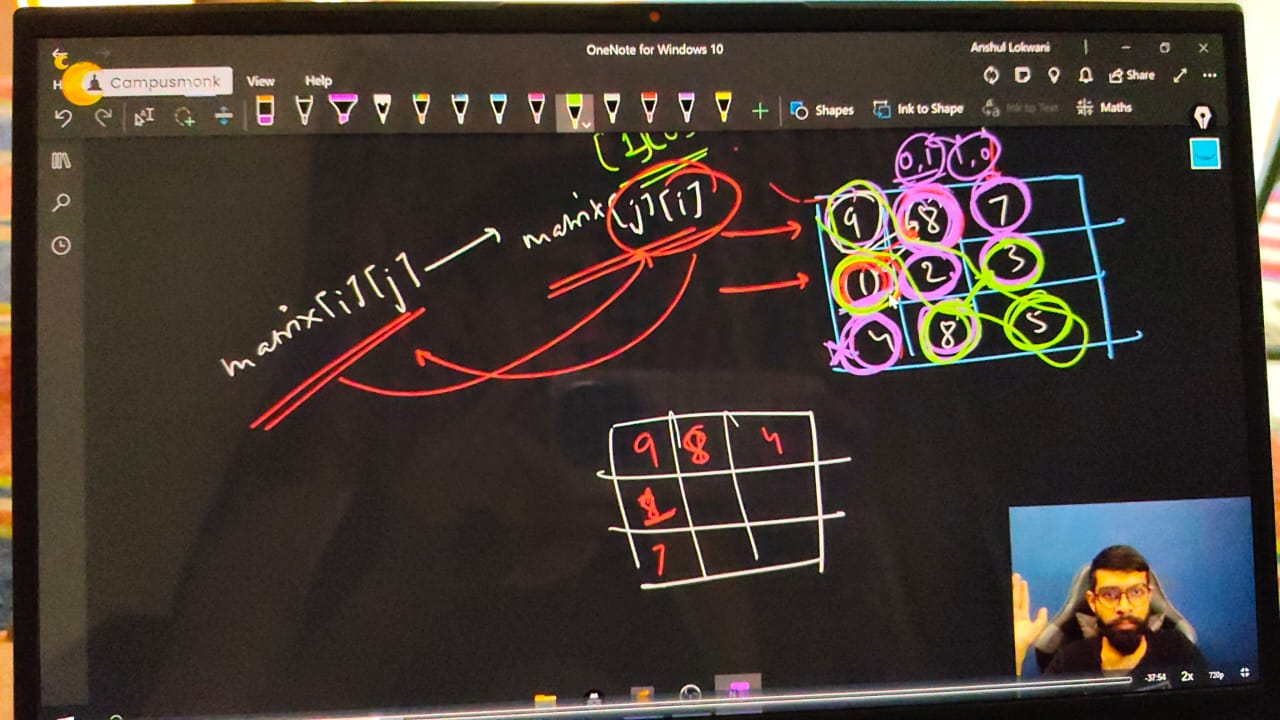 OneNote for Windows 10
Anshul Lokwani
Campusmonk
View
Help
Share
Shapes
Ink to Shape
Ink to Text
Maths
0,1
1,0
matrix[i][j]
matrix[j][i]
9 8 7
1 2 3
4 8 5
9 8 4
7
-37:54
2x
720p